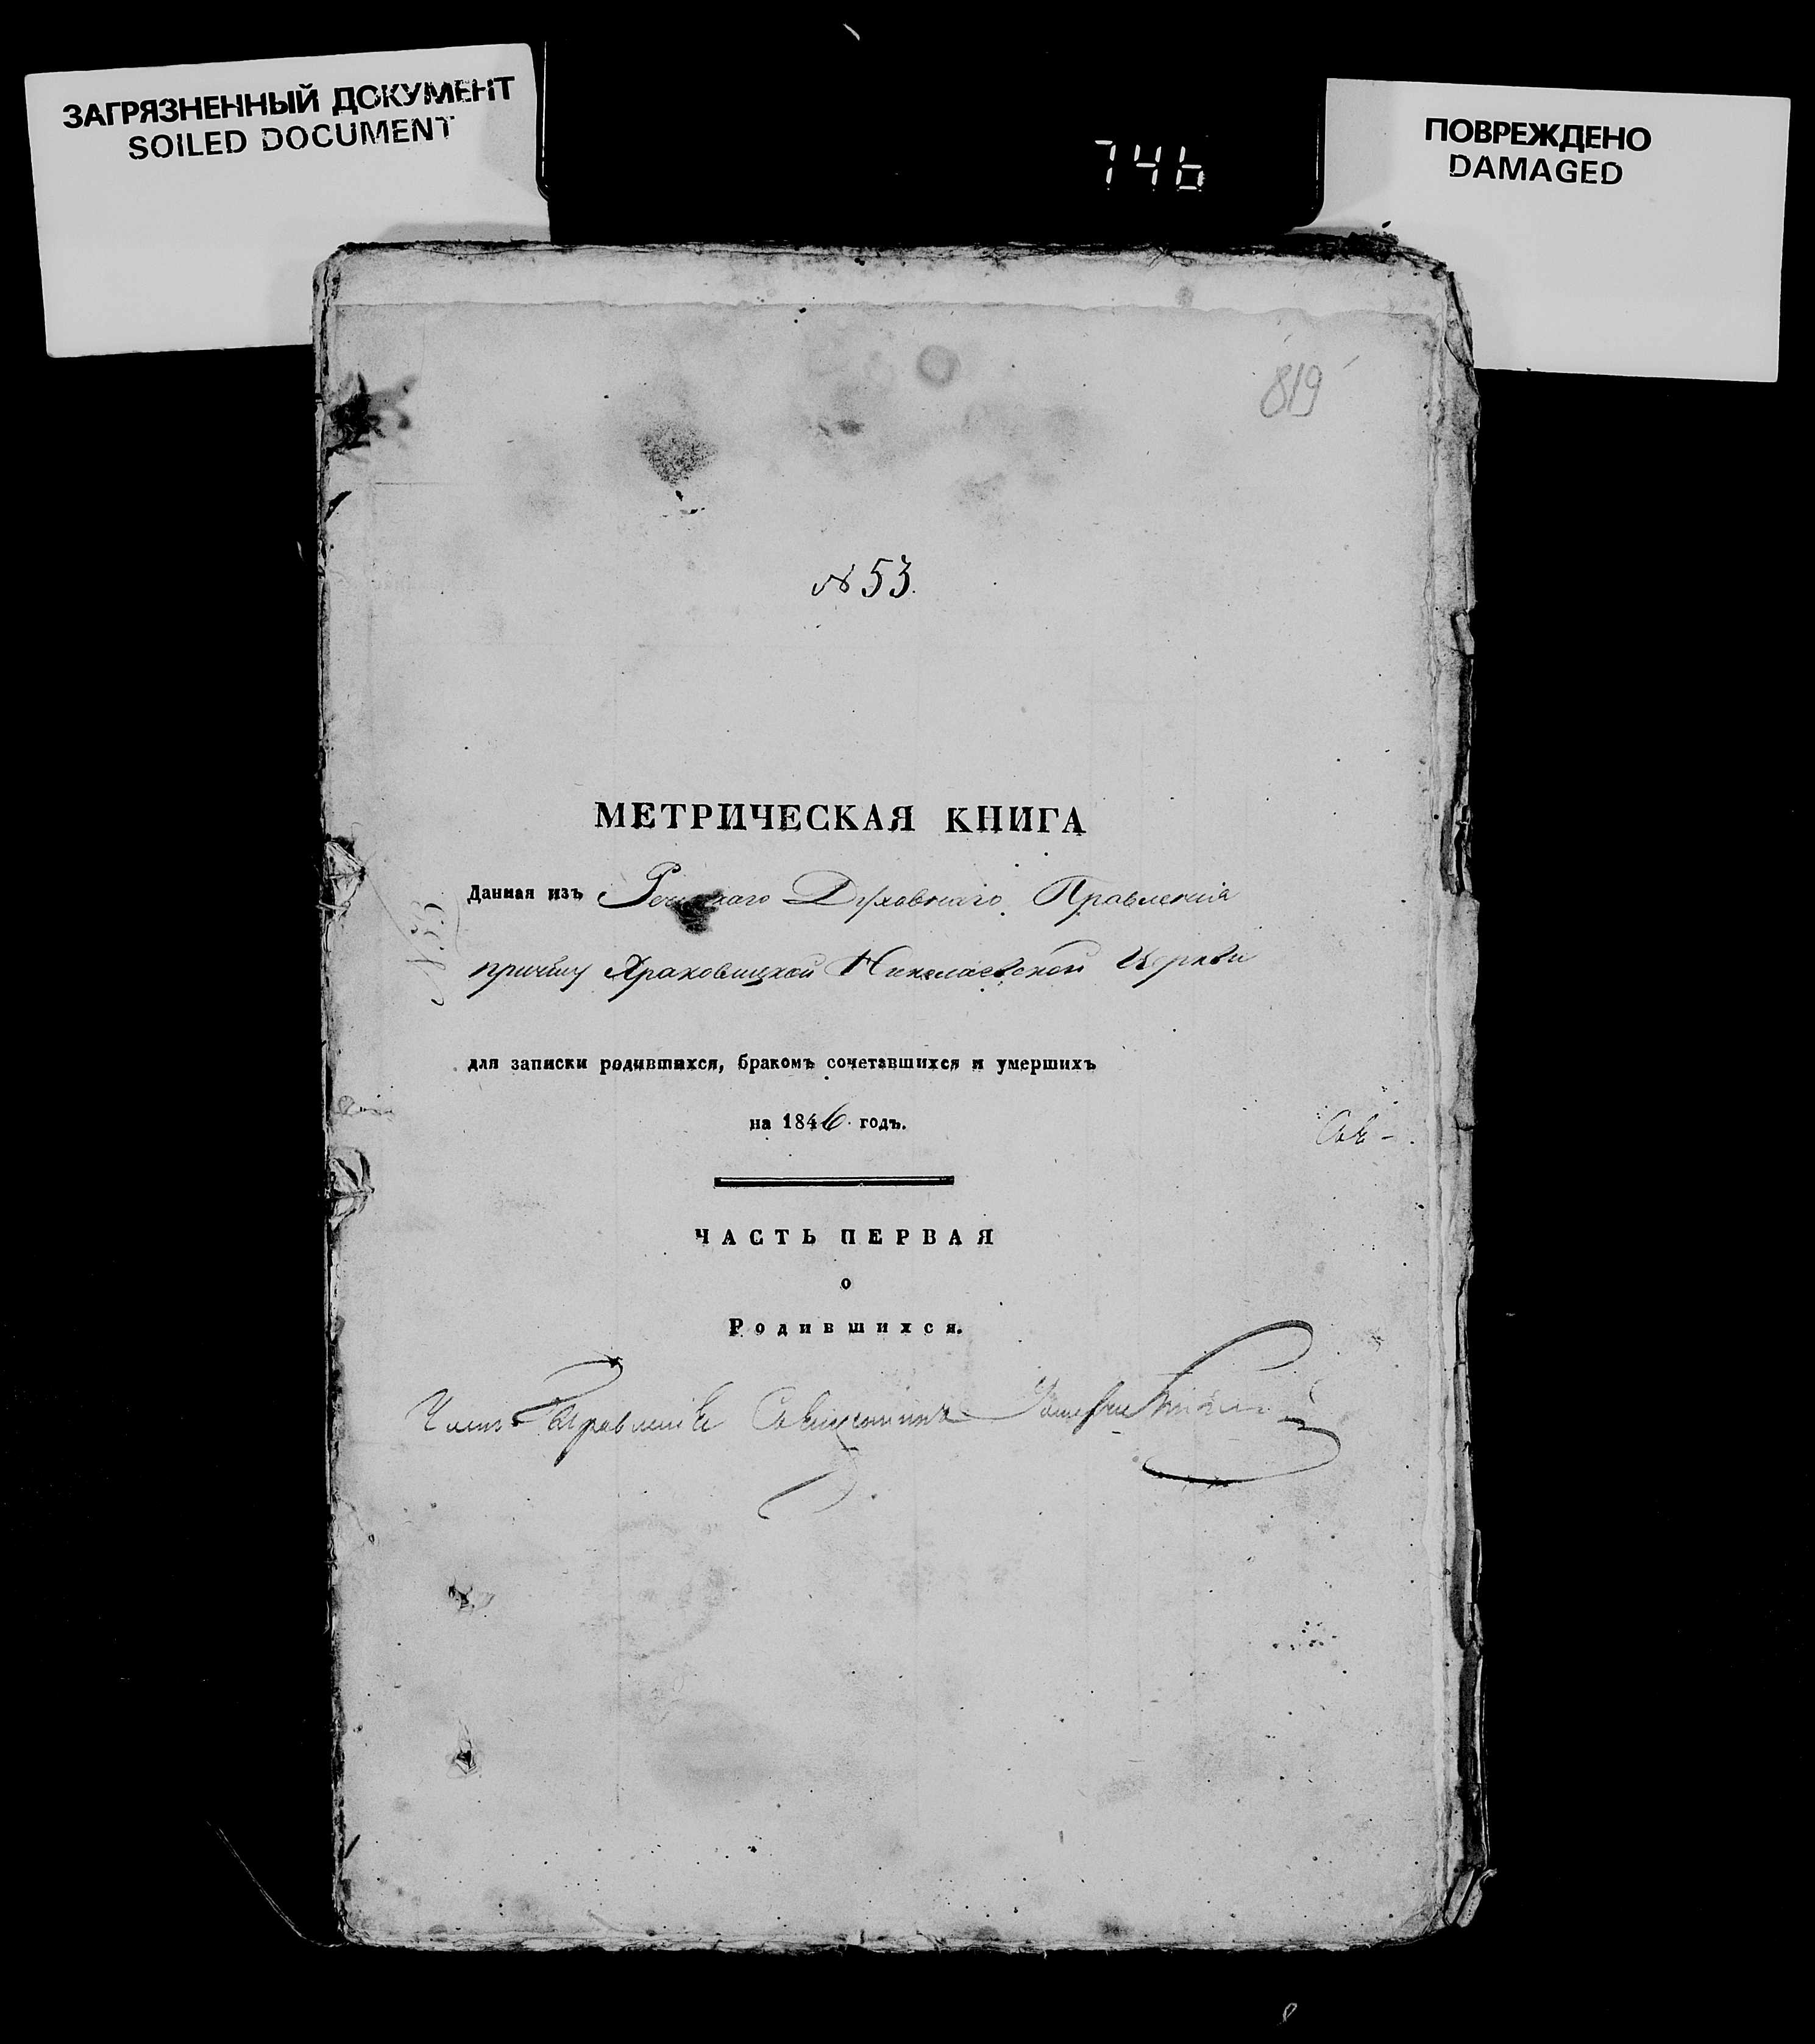 ЗАГРЯЗНЕННЫЙ ДОКУМЕНТ
SOILED DOCUMENT
746
ПОВРЕЖДЕНО
DAMAGED
819
№ 53.
МЕТРИЧЕСКАЯ КНИГА
Данная изъ Речицкаго Духовнаго Правленія
причту Храковицкой Николаевской Церкви
№ 53
для записки родившихся, бракомъ сочетавшихся и умершихъ
на 1846 годъ.
Свк-
ЧАСТЬ ПЕРВАЯ
о
Родившихся.
Членъ Правленія Священникъ